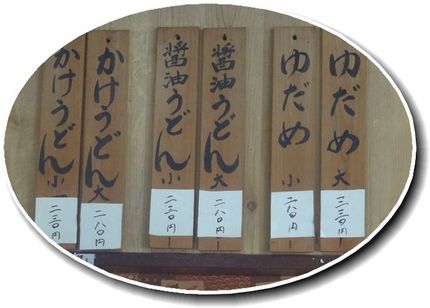 ゆだめ 大
三三〇円
ゆだめ 小
二八〇円
醤油うどん 大
二八〇円
醤油うどん 小
二三〇円
かけうどん 大
二八〇円
かけうどん 小
二三〇円